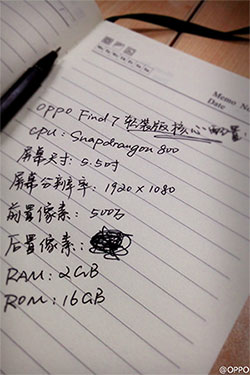 M
Date
OPPO Find 7 轻装版核心配置
CPU: Snapdragon 800
屏幕尺寸: 5.5吋
屏幕分辨率: 1920×1080
前置像素: 500万
后置像素:
RAM: 2GB
ROM: 16GB
@OPPO